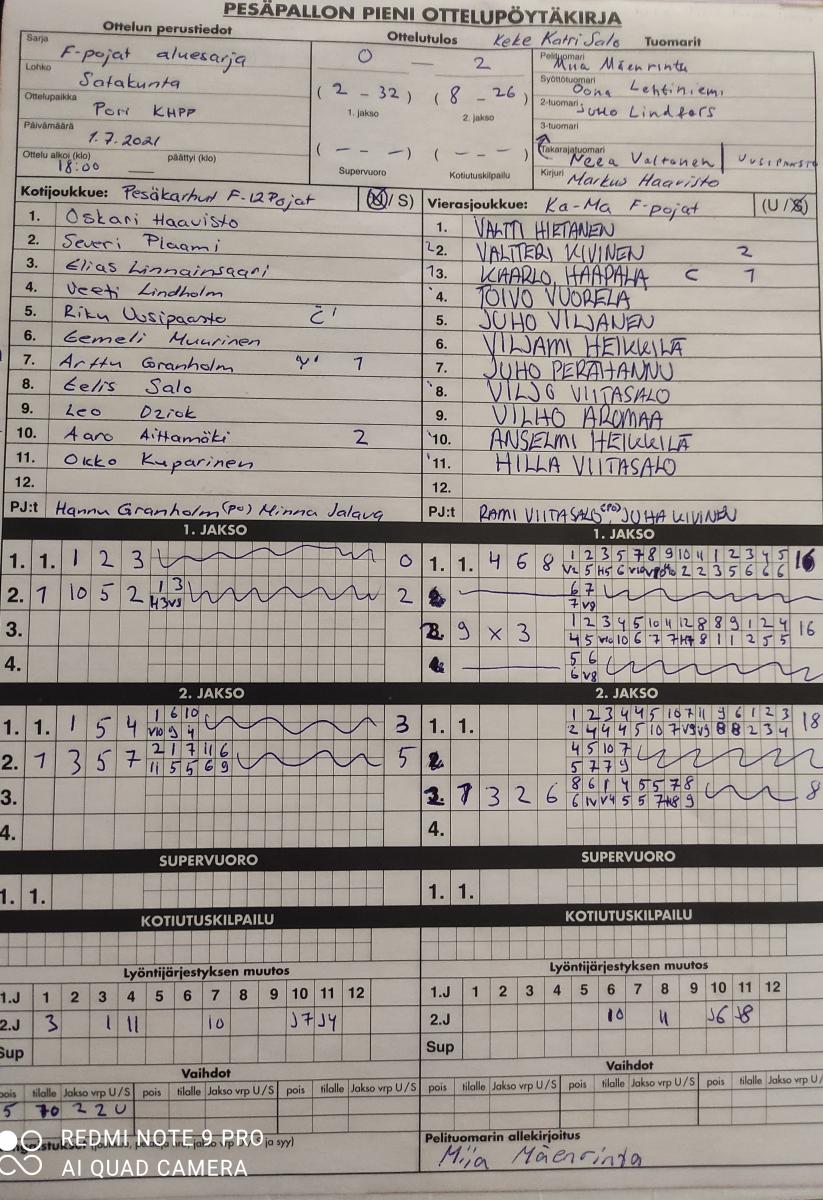 PESÄPALLON PIENI OTTELUPÖYTÄKIRJA
Ottelun perustiedot
Sarja
F-pojat aluesarja
Lohko
Satakunta
Ottelupaikka
Pori KHPP
Päivämäärä
1.7.2021
Ottelu alkoi (klo) päättyi (klo)
18:00
Ottelutulos
0 — 2
(2 - 32) (8 - 26)
1. jakso 2. jakso
(- - -) (- - -)
Supervuoro Kotiutuskilpailu
Keke Katri Salo Tuomarit
Pelituomari
Miia Mäenrinta
Syöttötuomari
Oona Lehtiniemi
2-tuomari
Juho Lindfors
3-tuomari
Takarajatuomari
Neea Valtonen
Kirjuri
Markus Haavisto
Kotijoukkue: Pesäkarhut F-12Pojat (U/S)
1. Oskari Haavisto
2. Severi Plaami
3. Elias Linnainsaari
4. Veeti Lindholm
5. Riku Uusipaasto C'
6. Eemeli Muurinen
7. Arttu Granholm 1
8. Eelis Salo
9. Leo
10. Aaro Aittamäki 2
11. Okko Kuparinen
12.
PJ:t Hannu Granholm (PO) Minna Jalava
Vierasjoukkue: Ka-Ma F-pojat (U/S)
1. VALTTI HIETANEN
2. VALTTERI KIVINEN 2
3. KAARLO HAAPALA C 1
4. TOIVO VUORELA
5. JUHO VILJANEN
6. VILJAMI HEIKKILÄ
7. JUHO PERÄHANNU
8. VILJO VIITASALO
9. VILHO AROMAA
10. ANSELMI HEIKKILÄ
11. HILLA VIITASALO
12.
PJ:t RAMI VIITASALO (PO), JUHA KIVINEN
1. JAKSO
1. 1. 1 2 3 0
2. 1 10 5 2 1 3 2
3.
4.
2. JAKSO
1. 1. 1 5 4 1 6 10 3
2. 1 3 5 7 2 1 7 11 6 5
11 5 5 6 9
3.
4.
SUPERVUORO
1. 1.
KOTIUTUSKILPAILU
Lyöntijärjestyksen muutos
1.J 1 2 3 4 5 6 7 8 9 10 11 12
2.J 3 1 11 10 J7 J4
Sup
Vaihdot
pois tilalle Jakso vrp U/S pois tilalle Jakso vrp U/S pois tilalle Jakso vrp U/S
5 10 2 2 U
1. JAKSO
1. 1. 4 6 8 1 2 3 5 7 8 9 10 11 1 2 3 4 5 16
6 7
9 x 3 1 2 3 4 5 10 11 12 8 8 9 1 2 4 16
5 6
2. JAKSO
1. 1. 1 2 3 4 4 5 10 7 11 9 6 1 2 3 18
4 5 10 7
5 7 7 9
1 3 2 6 8 6 1 4 5 5 7 8 8
4.
SUPERVUORO
1. 1.
KOTIUTUSKILPAILU
Lyöntijärjestyksen muutos
1.J 1 2 3 4 5 6 7 8 9 10 11 12
2.J 10 11 J6 J8
Sup
Vaihdot
pois tilalle Jakso vrp U/S pois tilalle Jakso vrp U/S pois tilalle Jakso vrp U/
Pelituomarin allekirjoitus
Miia Mäenrinta
REDMI NOTE 9 PRO
AI QUAD CAMERA